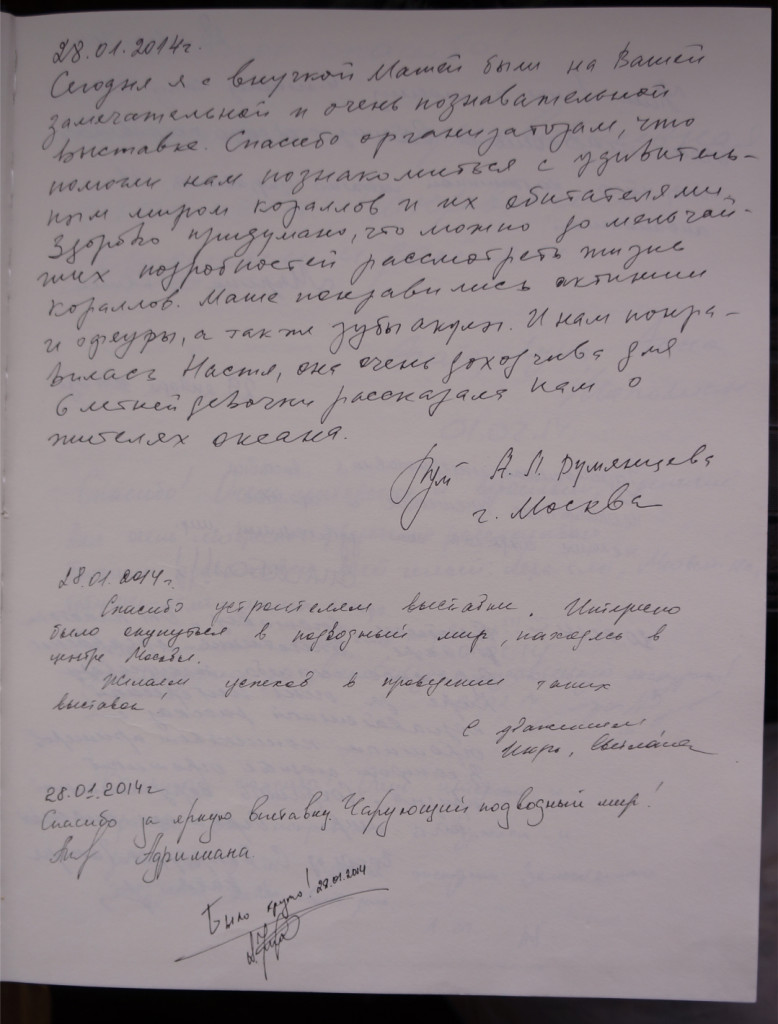 28.01.2014г.
Сегодня я с внучкой Машей были на Вашей
замечательной и очень познавательной
выставке. Спасибо организаторам, что
помогли нам познакомиться с удивитель-
ным миром кораллов и их обитателями.
Здорово придумано, что можно до мельчай-
ших подробностей рассмотреть жизнь
кораллов. Маше понравились актинии
и офиуры, а также зубы акулы. И нам понра-
вилась Настя, она очень доходчива для
6 летней девочки рассказала нам о
жителях океана.
Рум А. Л. Румянцева
г. Москва
28.01.2014г.
Спасибо устроителям выставки. Интересно
было окунуться в подводный мир, находясь в
центре Москвы.
Желаем успехов в проведении таких
выставок!
С уважением
Игорь, Светлана
28.01.2014г
Спасибо за яркую выставку. Чарующий подводный мир!
Было круто! 28.01.2014